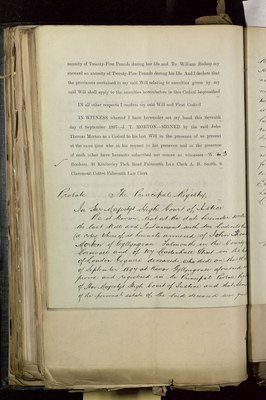 annuity of Twenty-Five Pounds during her life and To William Hoskin my
steward an annuity of Twenty-Five Pounds during his life And I declare that
the provisions contained in my said Will relating to annuities given by my
said Will shall apply to the annuities bequeathed in this Codicil immediately
IN all other respects I confirm my said Will and First Codicil
IN WITNESS whereof I have hereunto set my hand this
day of September 1897—J. T. MORTON—SIGNED by the said John
Thomas Morton as a Codicil to his last Will in the presence of us present
at the same time who at his request in his presence and in the presence
of each other have hereunto subscribed our names as witnesses—W.
Kimberley Park Road Falmouth Law Clerk A. H. Smith,
Claremont Cottes Falmouth Law Clerk
Probate The Principal Registry
In Her Majestys High Court of Justice
Be it Known, that at the date hereunder
the last Will and Testament with two Codicils
a copy whereof is hereunto annexed, of John
Morton of Gyllyngvase Falmouth in the County
Cornwall and of 107 Leadenhall Street in the
of London Esquire deceased, who died on the
of September 1897 at Gyllyngvase aforesaid
proved and registered in the Principal Probate
of Her Majestys High Court of Justice and that
of his personal estate of the said deceased was